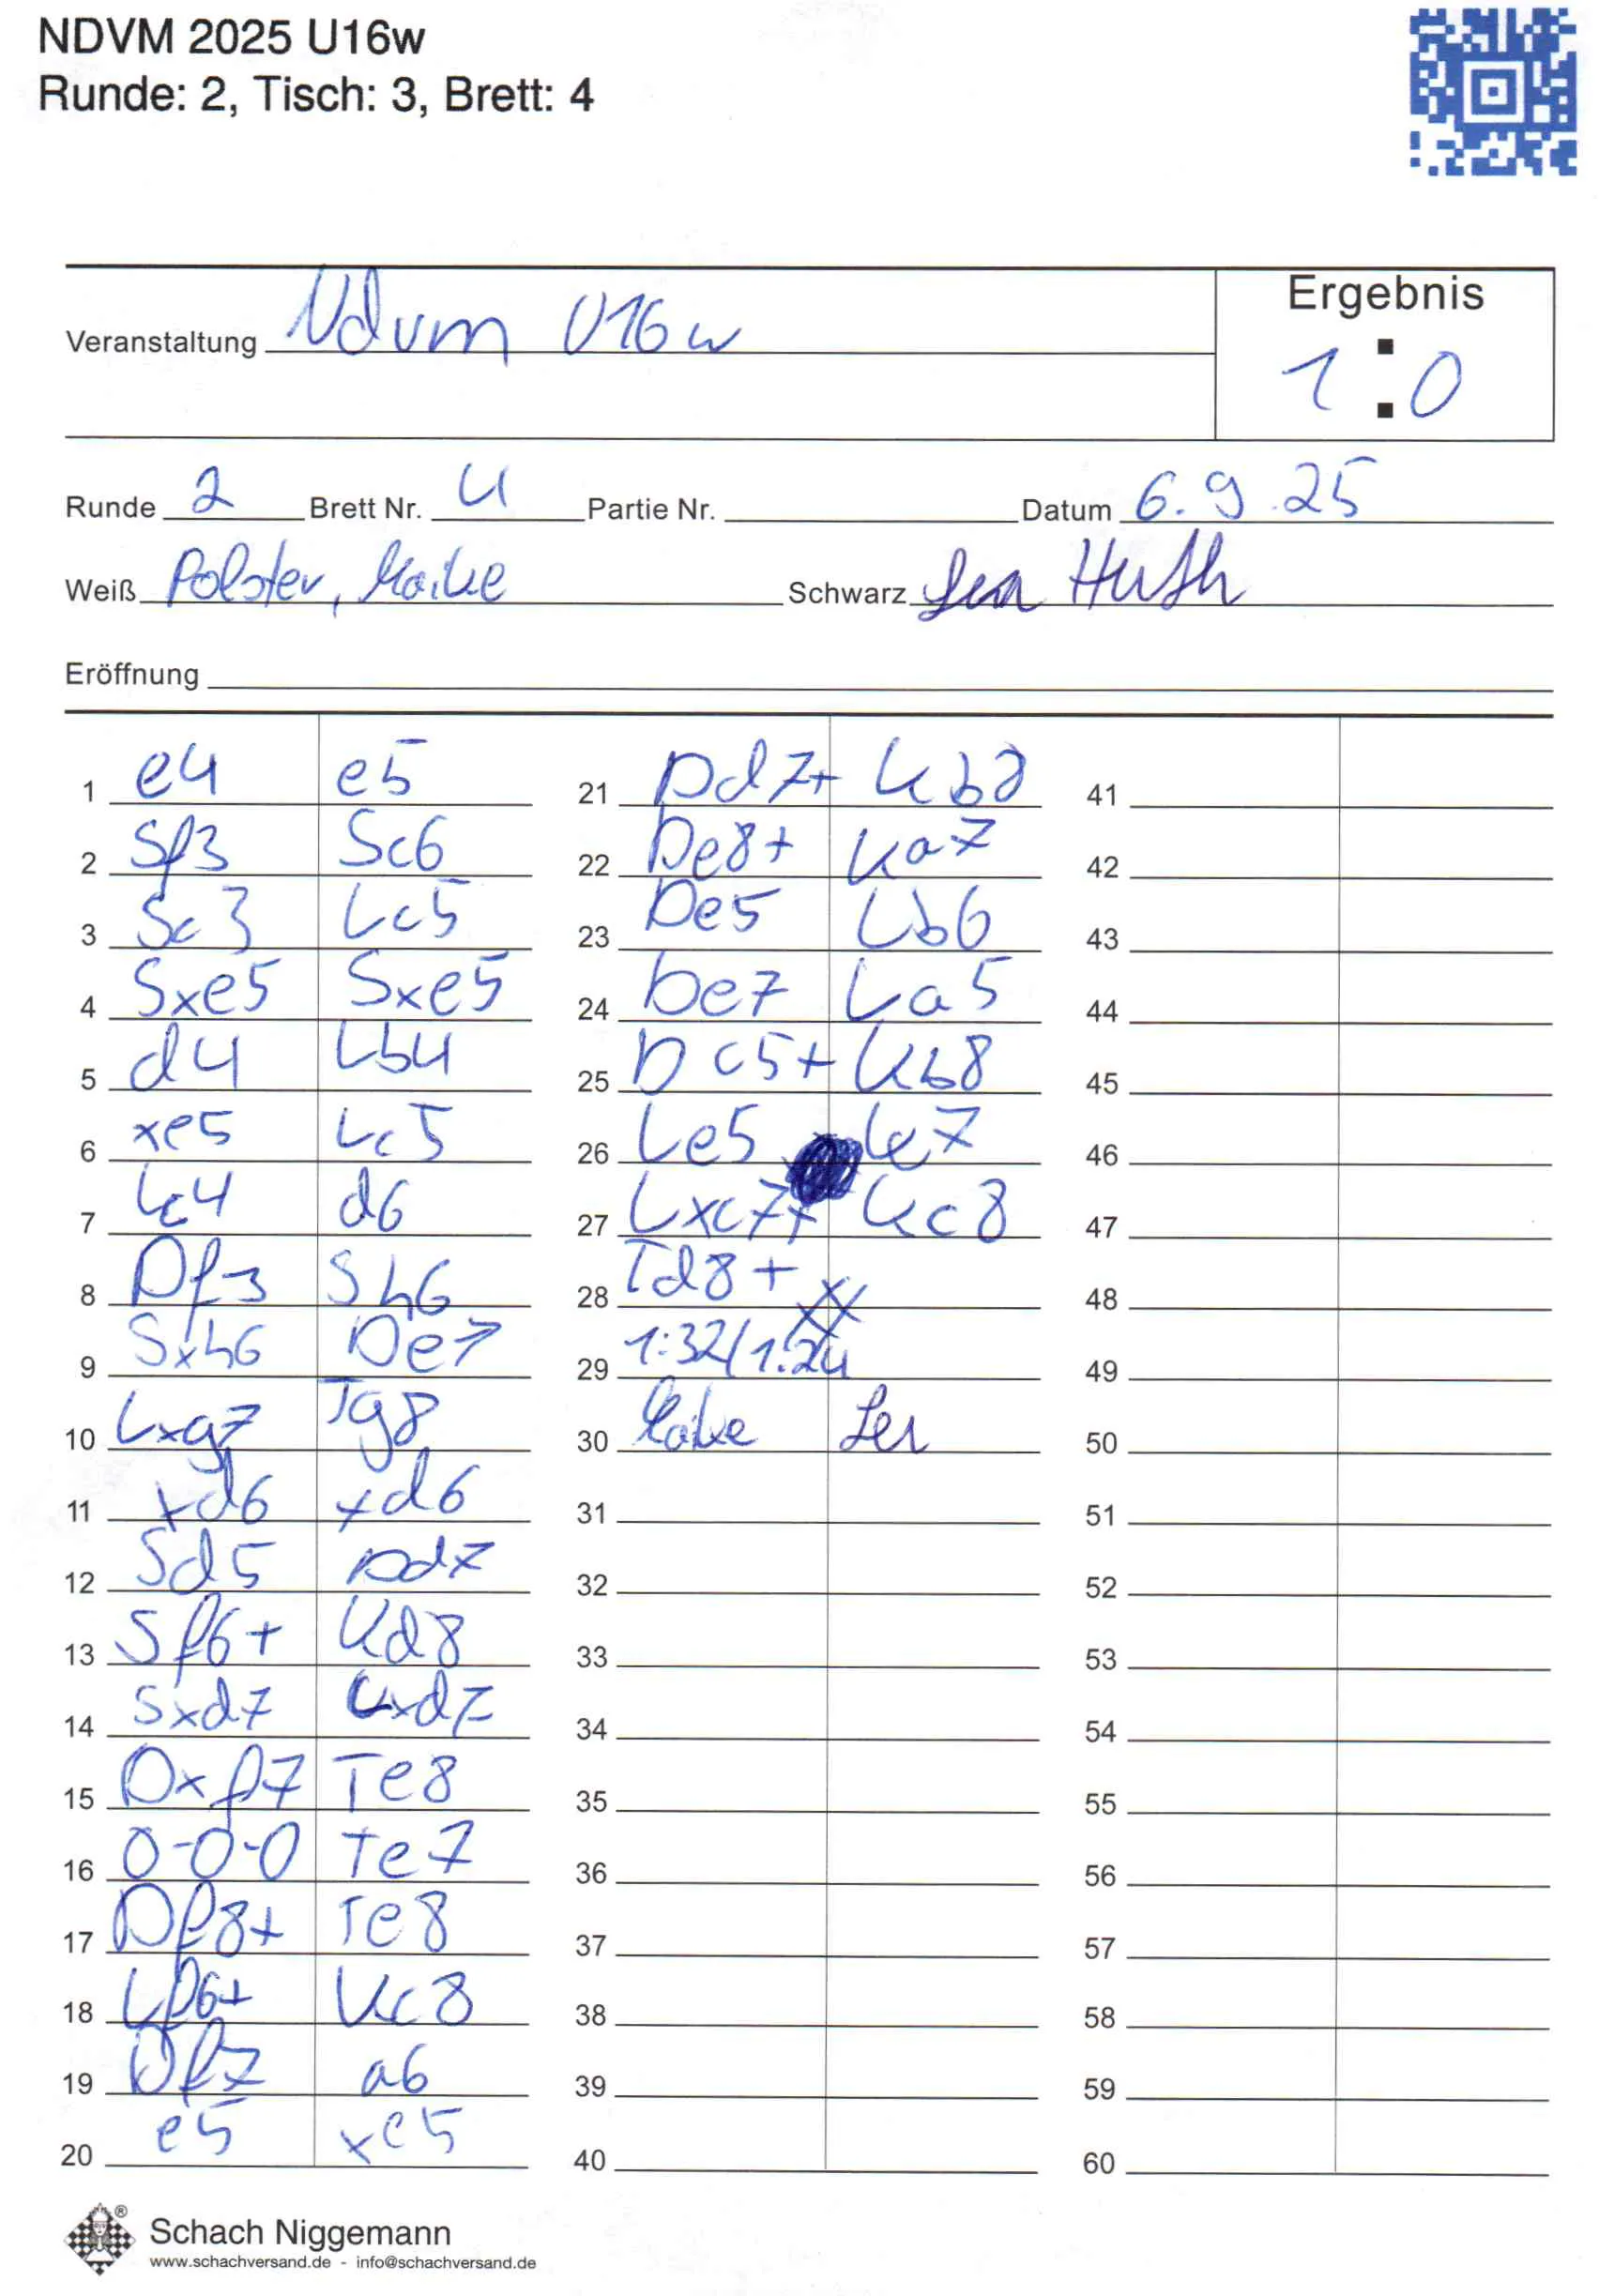 NDVM 2025 U16w
Runde: 2, Tisch: 3, Brett: 4
Veranstaltung Ndvm U16w
Ergebnis
1 : 0
Runde 2 Brett Nr. 4 Partie Nr. Datum 6.9.25
Weiß Polster, Maike Schwarz Lea Huth
Eröffnung
1 e4 e5
2 Sf3 Sc6
3 Sc3 Lc5
4 Sxe5 Sxe5
5 d4 Lb4
6 xe5 Lc5
7 Lc4 d6
8 Df3 Sh6
9 Sxh6 De7
10 Lxg7 Tg8
11 xd6 xd6
12 Sd5 Dd7
13 Sf6+ Kd8
14 Sxd7 Lxd7
15 Dxf7 Te8
16 0-0-0 Te7
17 Df8+ Te8
18 Lf6+ Kc8
19 Df7 a6
20 e5 xe5
21 Dd7+ Kb8
22 De8+ Ka7
23 De5 Lb6
24 De7 La5
25 Dc5+ Kb8
26 Le5 Lc7
27 Lxc7+ Kc8
28 Td8+
29 1:32/1:24
30 Maike Lea
31
32
33
34
35
36
37
38
39
40
41
42
43
44
45
46
47
48
49
50
51
52
53
54
55
56
57
58
59
60
Schach Niggemann
www.schachversand.de - info@schachversand.de